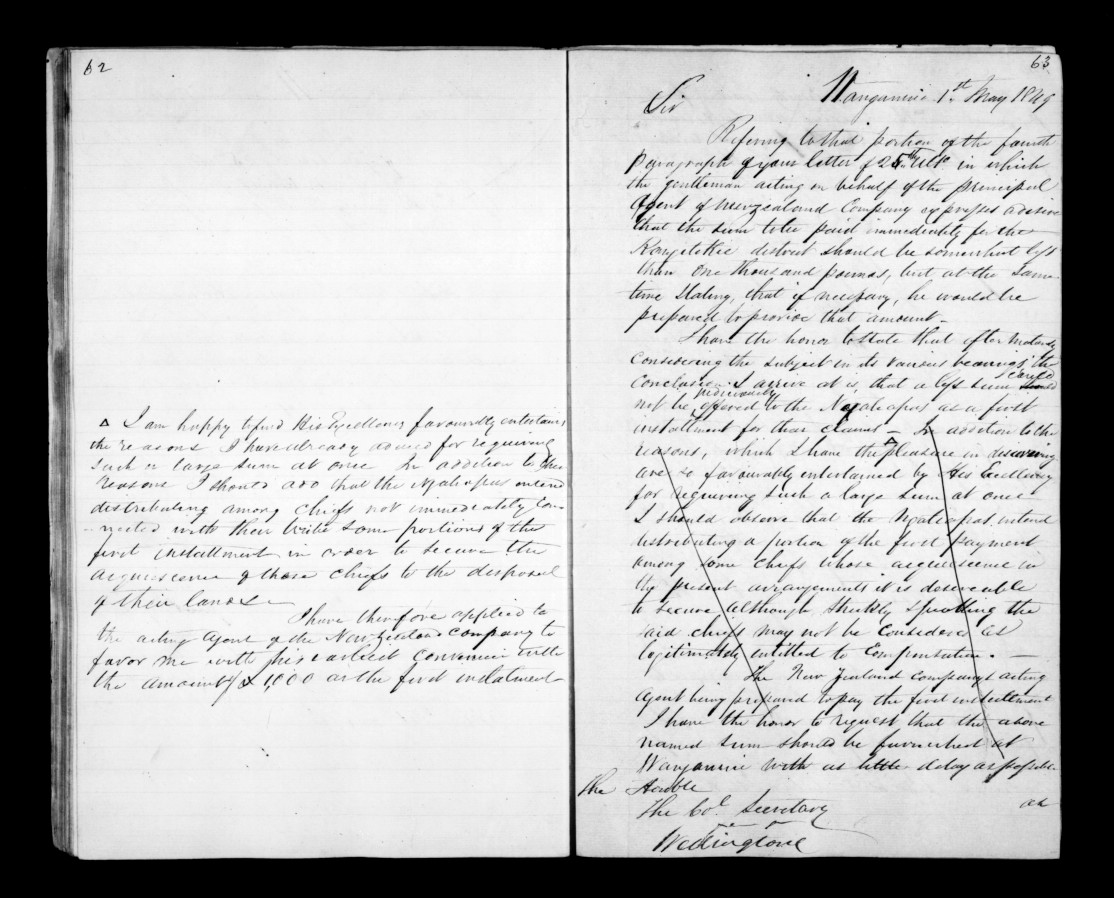 62
△ I am happy to find His Excellency favourably entertains
the reasons I have already adduced for requiring
such a large sum at once In addition to these
reasons I should add that the Ngatiapas intend
distributing among chiefs not immediately con
-nected with their tribe some portions of the
first installment in order to secure the
acquiescence of those chiefs to the disposal
of their lands —
I have therefore applied to
the acting Agent of the New Zealand Company to
favor me with his earliest convenience with
the amount of £1,000 as the first instalment —
63
Wanganui 1st May 1849
Sir
Referring to that portion of the fourth
Paragraph of your letter of 25th Ulto. in which
the gentleman acting on behalf of the principal
Agent of New Zealand Company expresses a desire
that the sum to be paid immediately for the
Rangitikie district should be somewhat less
than One thousand pounds, but at the same
time stating, that if necessary, he would be
prepared to provide that amount —
I have the honor to state that after maturely
considering the subject in its various bearings, the
Conclusion I arrive at is that a less sum should could
not be judiciously offered to the Ngatiapas as a first
installment for their claims — △ In addition to the
reasons, which I have the pleasure in discovering
are so favourably entertained by His Excellency
for requiring such a large sum at once
I should observe that the Ngatiapas intend
distributing a portion of the first payment
among some chiefs whose acquiescence in
the present arrangements it is desireable
to secure, although strictly speaking the
said chiefs may not be considered as
legitimately entitled to Compensation. —
The New Zealand Company's acting
Agent being prepared to pay the first installment
I have the honor to request that the above
named sum should be furnished at
Wanganui with as little delay as possible
The Honble
The Col. Secretary
Wellington